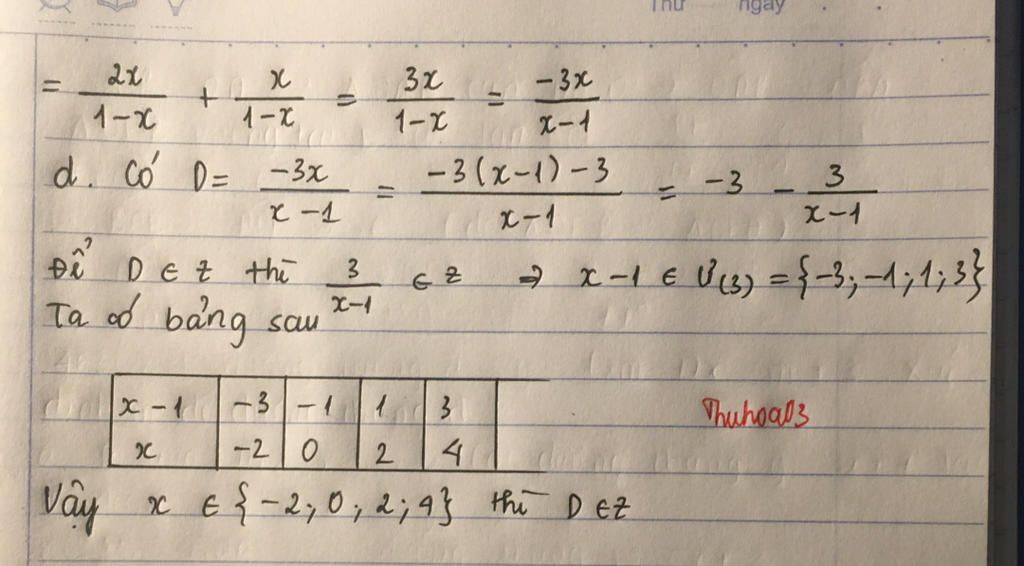 Thứ ngày
= 2x/(1-x) + x/(1-x) = 3x/(1-x) = -3x/(x-1)
d. Có D = -3x/(x-1) = (-3(x-1)-3)/(x-1) = -3 - 3/(x-1)
Để D ∈ Z thì 3/(x-1) ∈ Z ⇒ x-1 ∈ Ư(3) = {-3; -1; 1; 3}
Ta có bảng sau
x-1 -3 -1 1 3
Thuhoa03
x -2 0 2 4
Vậy x ∈ {-2; 0; 2; 4} thì D ∈ Z